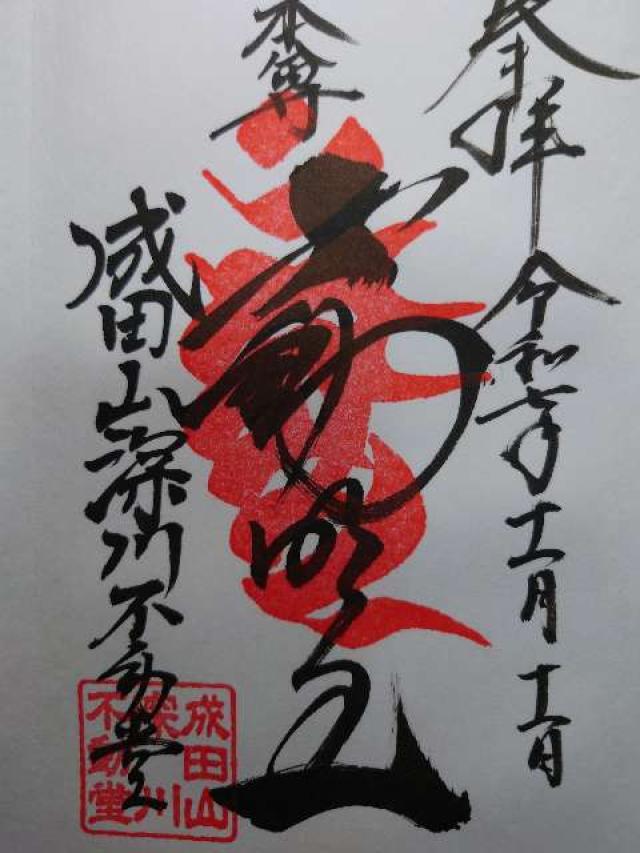 奉拝 令和七年十一月十一日
本尊
不動明王
成田山深川不動堂
成田山
深川
不動堂